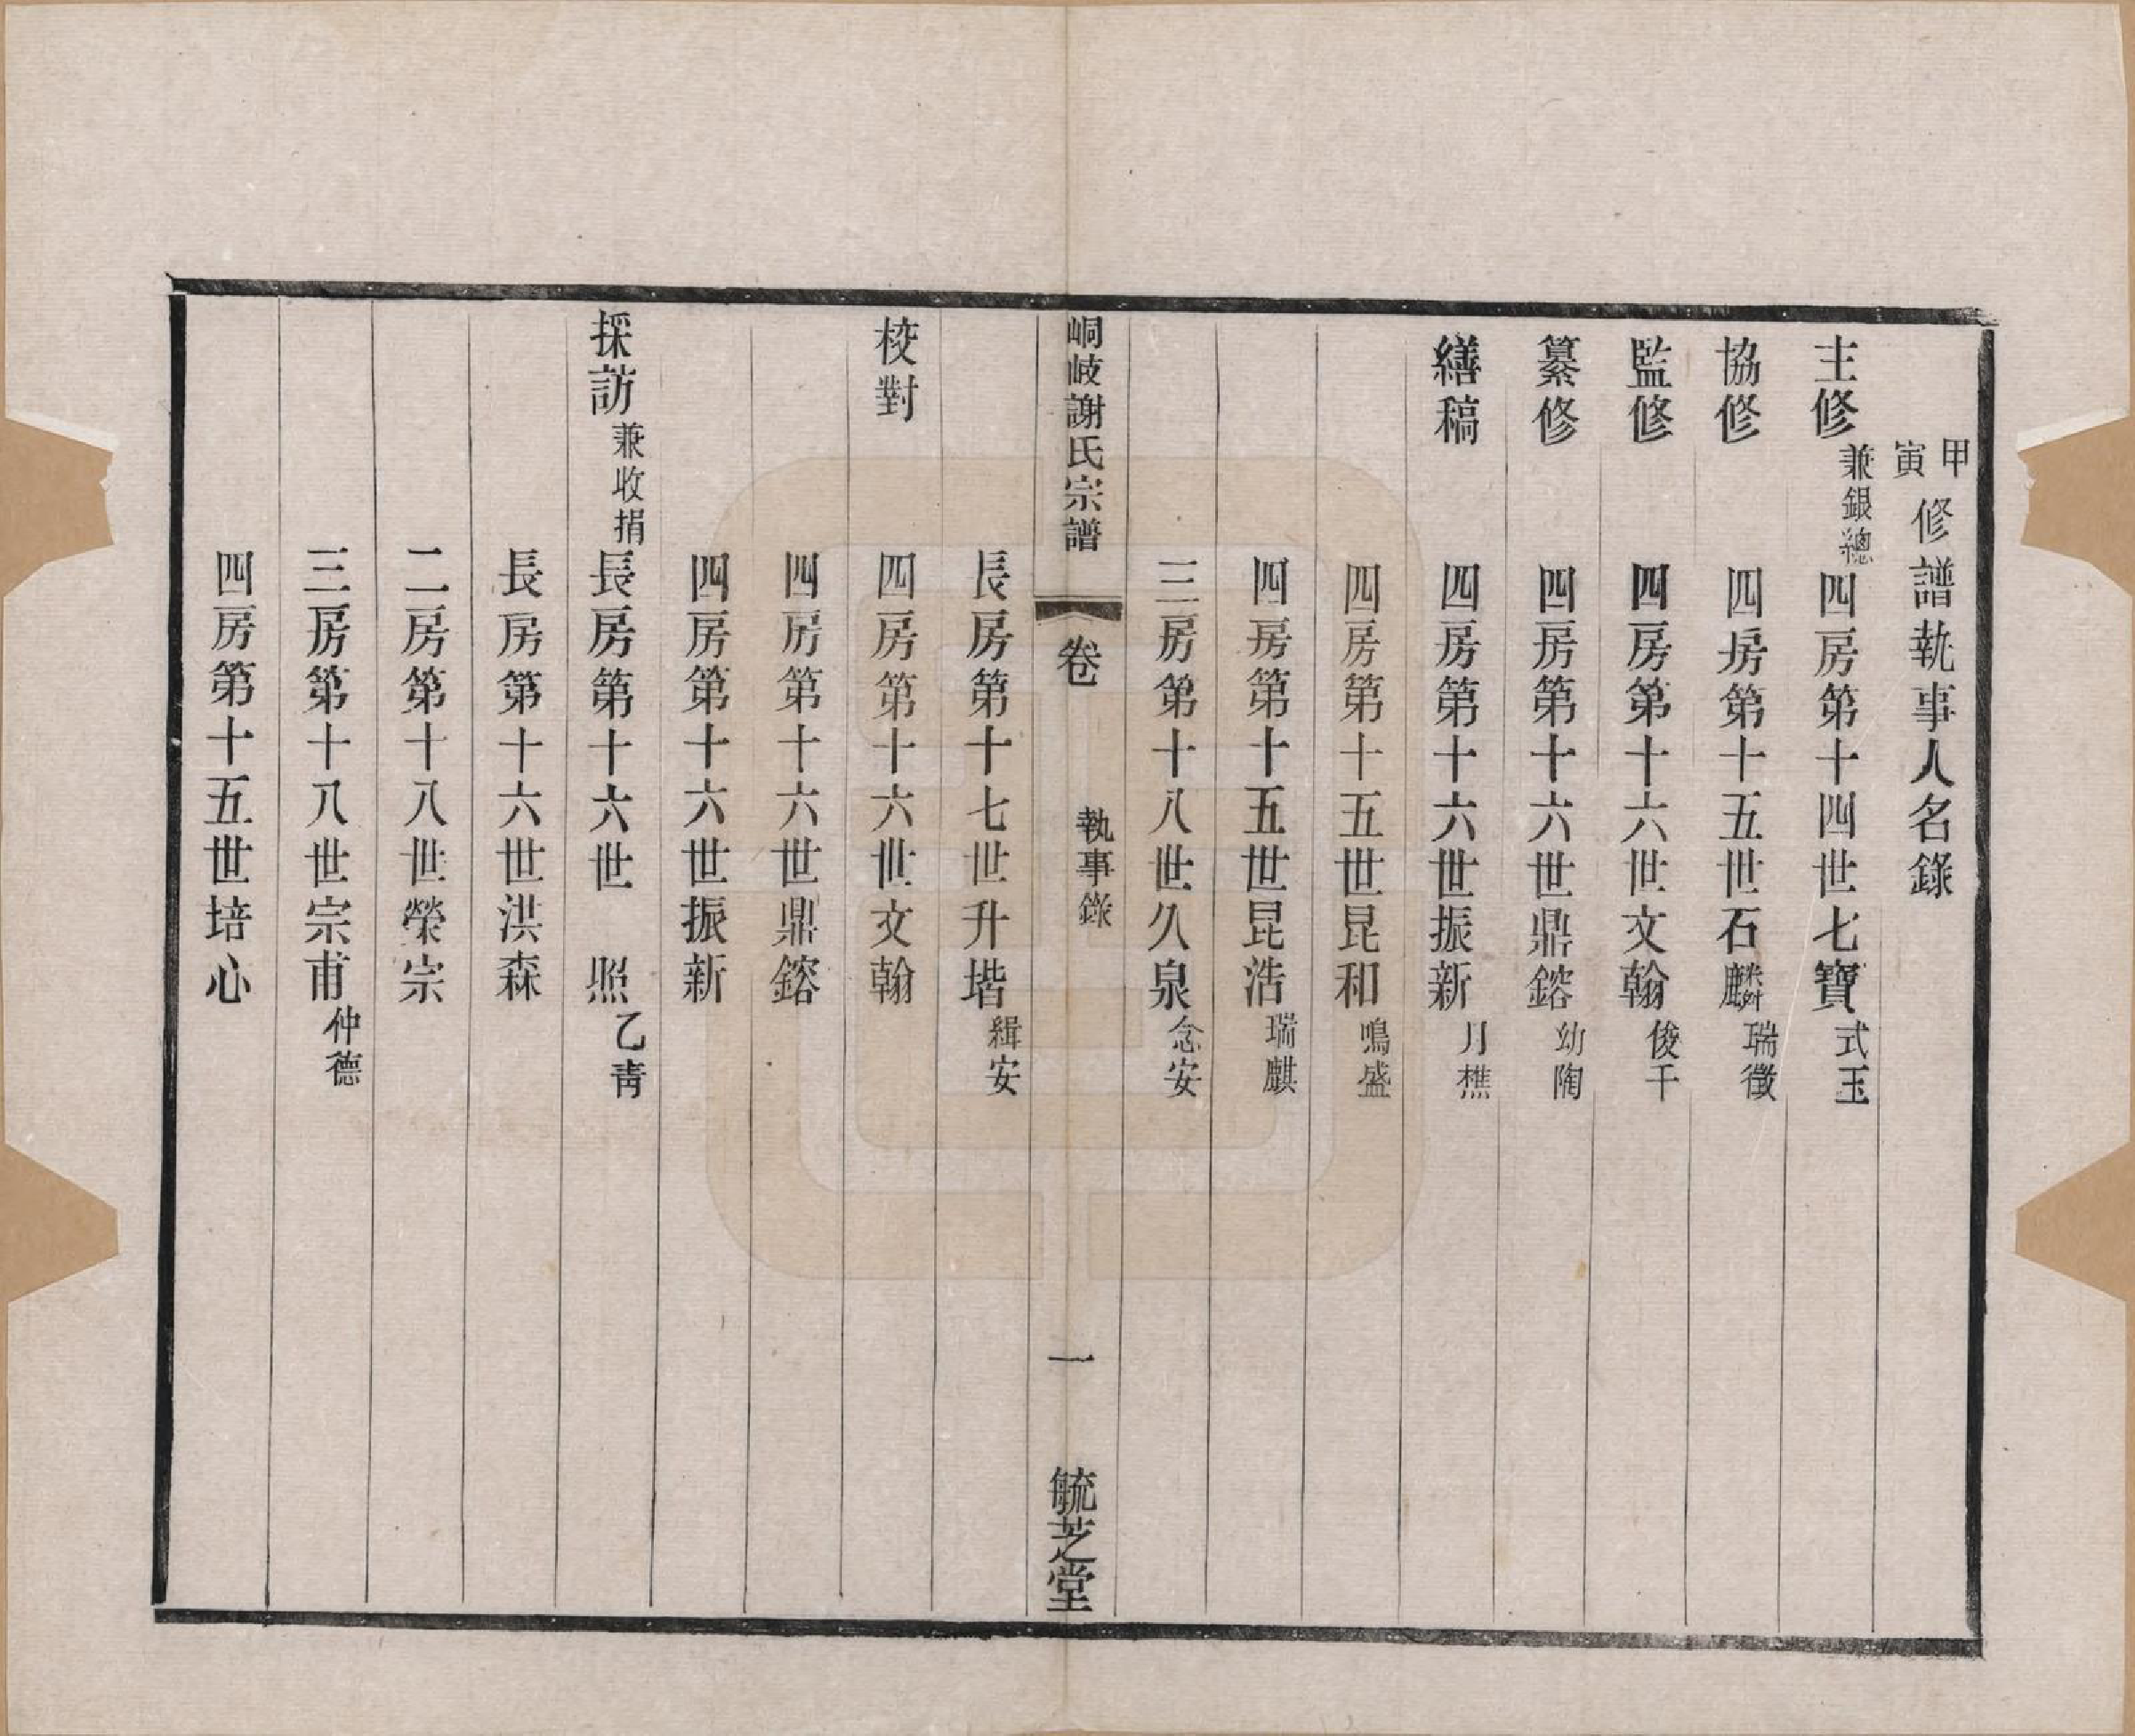 甲寅修譜執事人名錄
主修兼銀總四房第十四世七寶式玉
協修四房第十五世石麟瑞徵
監修四房第十六世文翰俊千
纂修四房第十六世鼎鎔幼陶
繕稿四房第十六世振新月樵
四房第十五世昆和鳴盛
四房第十五世昆浩瑞麒
三房第十八世久泉念安
峒岐謝氏宗譜 卷 執事錄 一 毓芝堂
長房第十七世升堦緝安
校對四房第十六世文翰
四房第十六世鼎鎔
四房第十六世振新
採訪兼收捐長房第十六世 照乙青
長房第十六世洪森
二房第十八世榮宗
三房第十八世宗甫仲德
四房第十五世培心